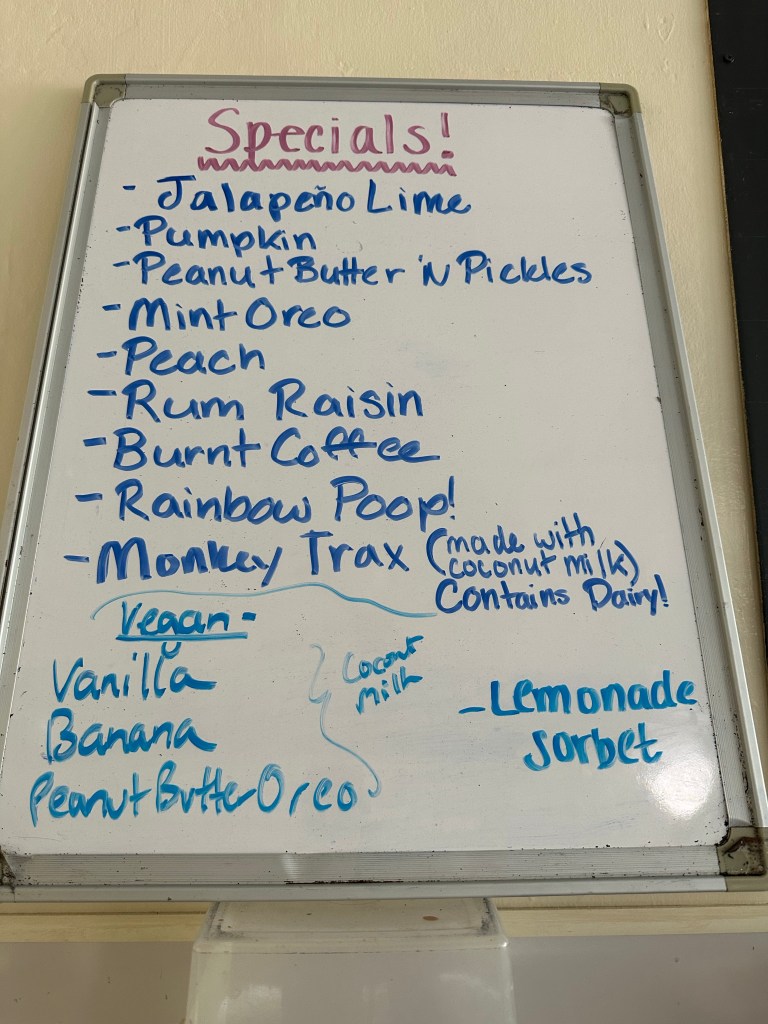 Specials!
- Jalapeño Lime
- Pumpkin
- Peanut Butter 'N Pickles
- Mint Oreo
- Peach
- Rum Raisin
- Burnt Coffee
- Rainbow Poop!
- Monkey Trax (made with coconut milk)
Contains Dairy!
Vegan -
Vanilla
Banana
Peanut Butter Oreo
Coconut
Milk
- Lemonade
Sorbet